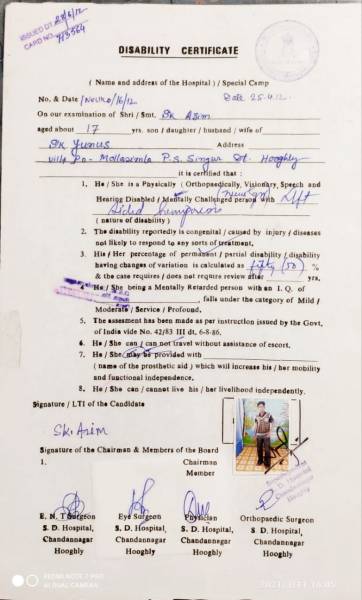 ISSUED DT. 28/6/12
CARD NO. 713564
DISABILITY CERTIFICATE
( Name and address of the Hospital ) / Special Camp
No. & Date /16/12 Date 25.4.12
On our examination of Shri / Smt. Sk Asim
aged about 17 yrs. son / daughter / husband / wife of
Sk Yunus Address
Vill+ Po- Mollasimla P.S. Singur Dt. Hooghly
it is certified that :
1. He / She is a Physically ( Orthopaedically, Visionary, Speech and
Hearing Disabled / Mentally Challenged person with Left
Sided
( nature of disability )
2. The disability reportedly is congenital / caused by injury / diseases
not likely to respond to any sorts of treatment.
3. His / Her percentage of permanent / partial disability / disability
having changes of variation is calculated as fifty (50) %
& the case requires / does not require review after yrs.
He / She being a Mentally Retarded person with an I. Q. of
, falls under the category of Mild /
Moderate / Service / Profound.
5. The assesment has been made as per instruction issued by the Govt.
of India vide No. 42/83 III dt. 6-8-86.
6. He / She can / can not travel without assistance of escort.
7. He / She may be provided with
( name of the prosthetic aid ) which will increase his / her mobility
and functional independence.
8. He / She can / cannot live his / her livelihood independently.
Signature / LTI of the Candidate
Sk. Asim
Signature of the Chairman & Members of the Board
1. Chairman
Member
S. D. Hospital
Chandannagar
Hooghly
E. N. T Surgeon Eye Surgeon Physician Orthopaedic Surgeon
S. D. Hospital, S. D. Hospital, S. D. Hospital, S. D. Hospital,
Chandannagar Chandannagar Chandannagar Chandannagar
Hooghly Hooghly Hooghly Hooghly
REDMI NOTE 7 PRO
AI DUAL CAMERA